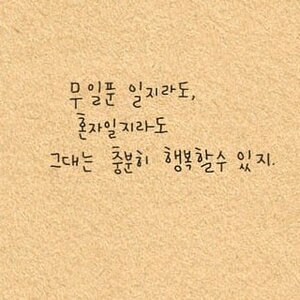 무일푼 일지라도,
혼자일지라도
그대는 충분히 행복할수 있지.